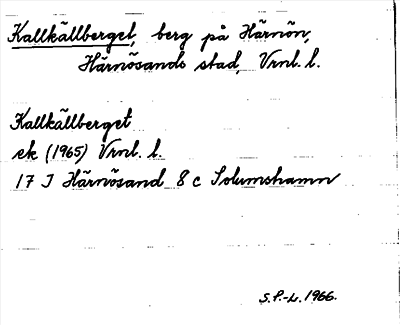 Kallkällberget, berg på Härnön,
Härnösands stad, Vrnl. l.
Kallkällberget
ek (1965) Vrnl. l.
17 J Härnösand 8 c Solumshamn
S.P.-L. 1966.